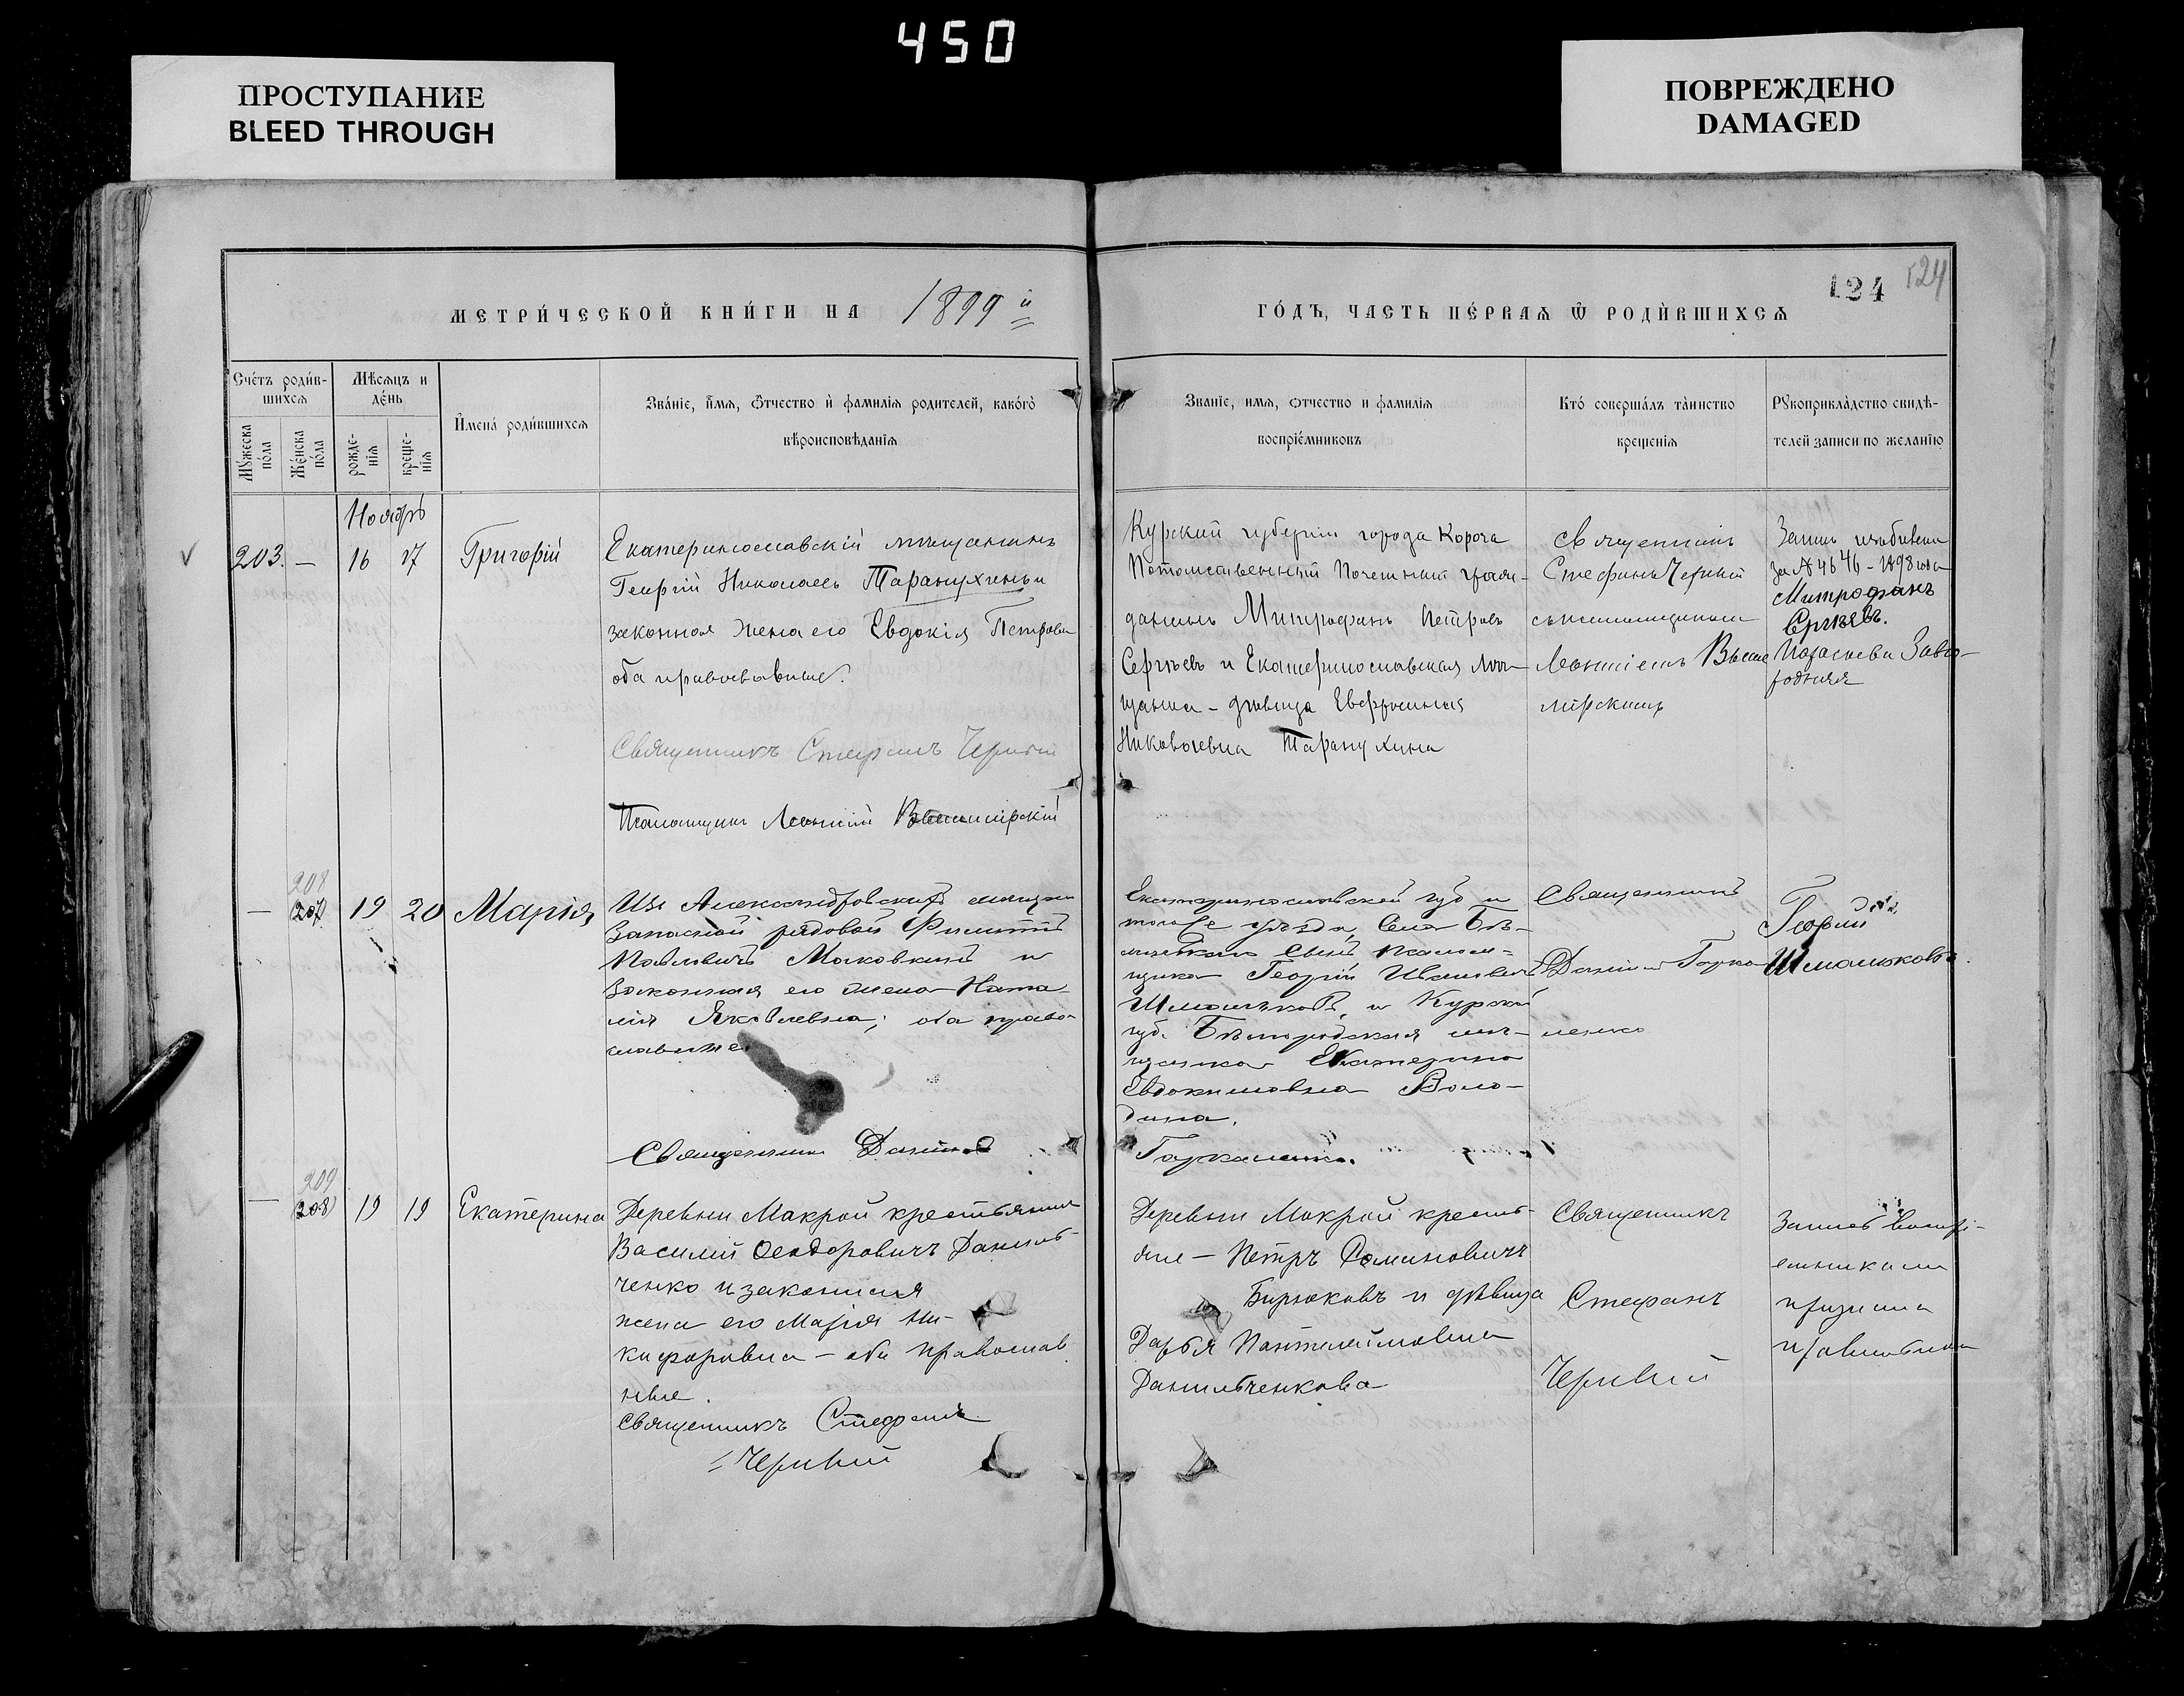 450
ПРОСТУПАНИЕ
BLEED THROUGH
ПОВРЕЖДЕНО
DAMAGED
МЕТРИ́ЧЕСКОЙ КНИ́ГИ НА 1899 й
ГО́ДЪ, ЧАСТЬ ПЕ́РВАѦ Ѿ РОДИ́ВШИХСѦ
124 124
Сче́тъ роди́в-
шихсѧ
Мѣ́сяцъ и
де́нь
Му́жеска
по́ла
Же́нска
по́ла
рожде-
нїѧ
креще-
нїѧ
И҆мена́ роди́вшихсѧ
Зва́нїе, и҆́мѧ, ѻ҆́тчество и҆ фамилїѧ родителей, како́гѡ
вѣроисповѣданїѧ
Званїе, имѧ, ѻтчество и фамилїѧ
воспрїе́мниковъ
Кто́ соверша́лъ та́инство
крещенїѧ
Рꙋкоприкла́дство свидѣ-
телей записи по желанїю
Ноябрь
203. — 16 17 Григорій
Екатеринославскій мѣщанинъ
Георгій Николаевъ Таранухинъ и
законная жена его Евдокія Петрова
оба православные.
Священникъ Стефанъ Черный
Псаломщикъ Леонтій
Курской губерніи города Короча
Потомственный Почетный граж-
данинъ Митрофанъ Петровъ
Сергѣевъ и Екатеринославская мѣ-
щанка – дѣвица Евфросинія
Николаевна Таранухина
Священникъ
Стефанъ Черный
съ псаломщикомъ
Леонтіемъ
мірскимъ
за № 4646 – 1898 года
Митрофанъ
Сергѣевъ.
— 208
207 19 20 Марія
Изъ Александровскихъ мещан
Запасный рядовой Филиппъ
Павловичъ Маковкинъ и
Законная его жена Ната
лія Яковлевна; оба право-
славные
Священникъ Даніилъ
Гаркаленко.
Екатеринославской губ и
того же уѣзда, Села
сынъ псалом-
щика Георгій Ивановичъ
Шмальковъ, и Курской
губ. Бѣлгородская мѣ-
щанка Екатерина
Евдокимовна Воло-
дина.
Священникъ
Даніилъ Гарка
ленко
Георгий
Шмальковъ.
— 209
208 19 19 Екатерина
Деревни Мокрой крестьянинъ
Василій Ѳеодоровичъ Даниль-
ченко и законная
жена его Марія Ни-
кифоровна – оба православ
ные.
Священникъ Стефанъ
Черный
Деревни Мокрой кресть-
яне – Петръ
Бирюковъ и дѣвица
Дарья Пантелеймовна
Данильченкова
Священникъ
Стефанъ
Черный
Запись воспрі-
емниками
признана
правильною